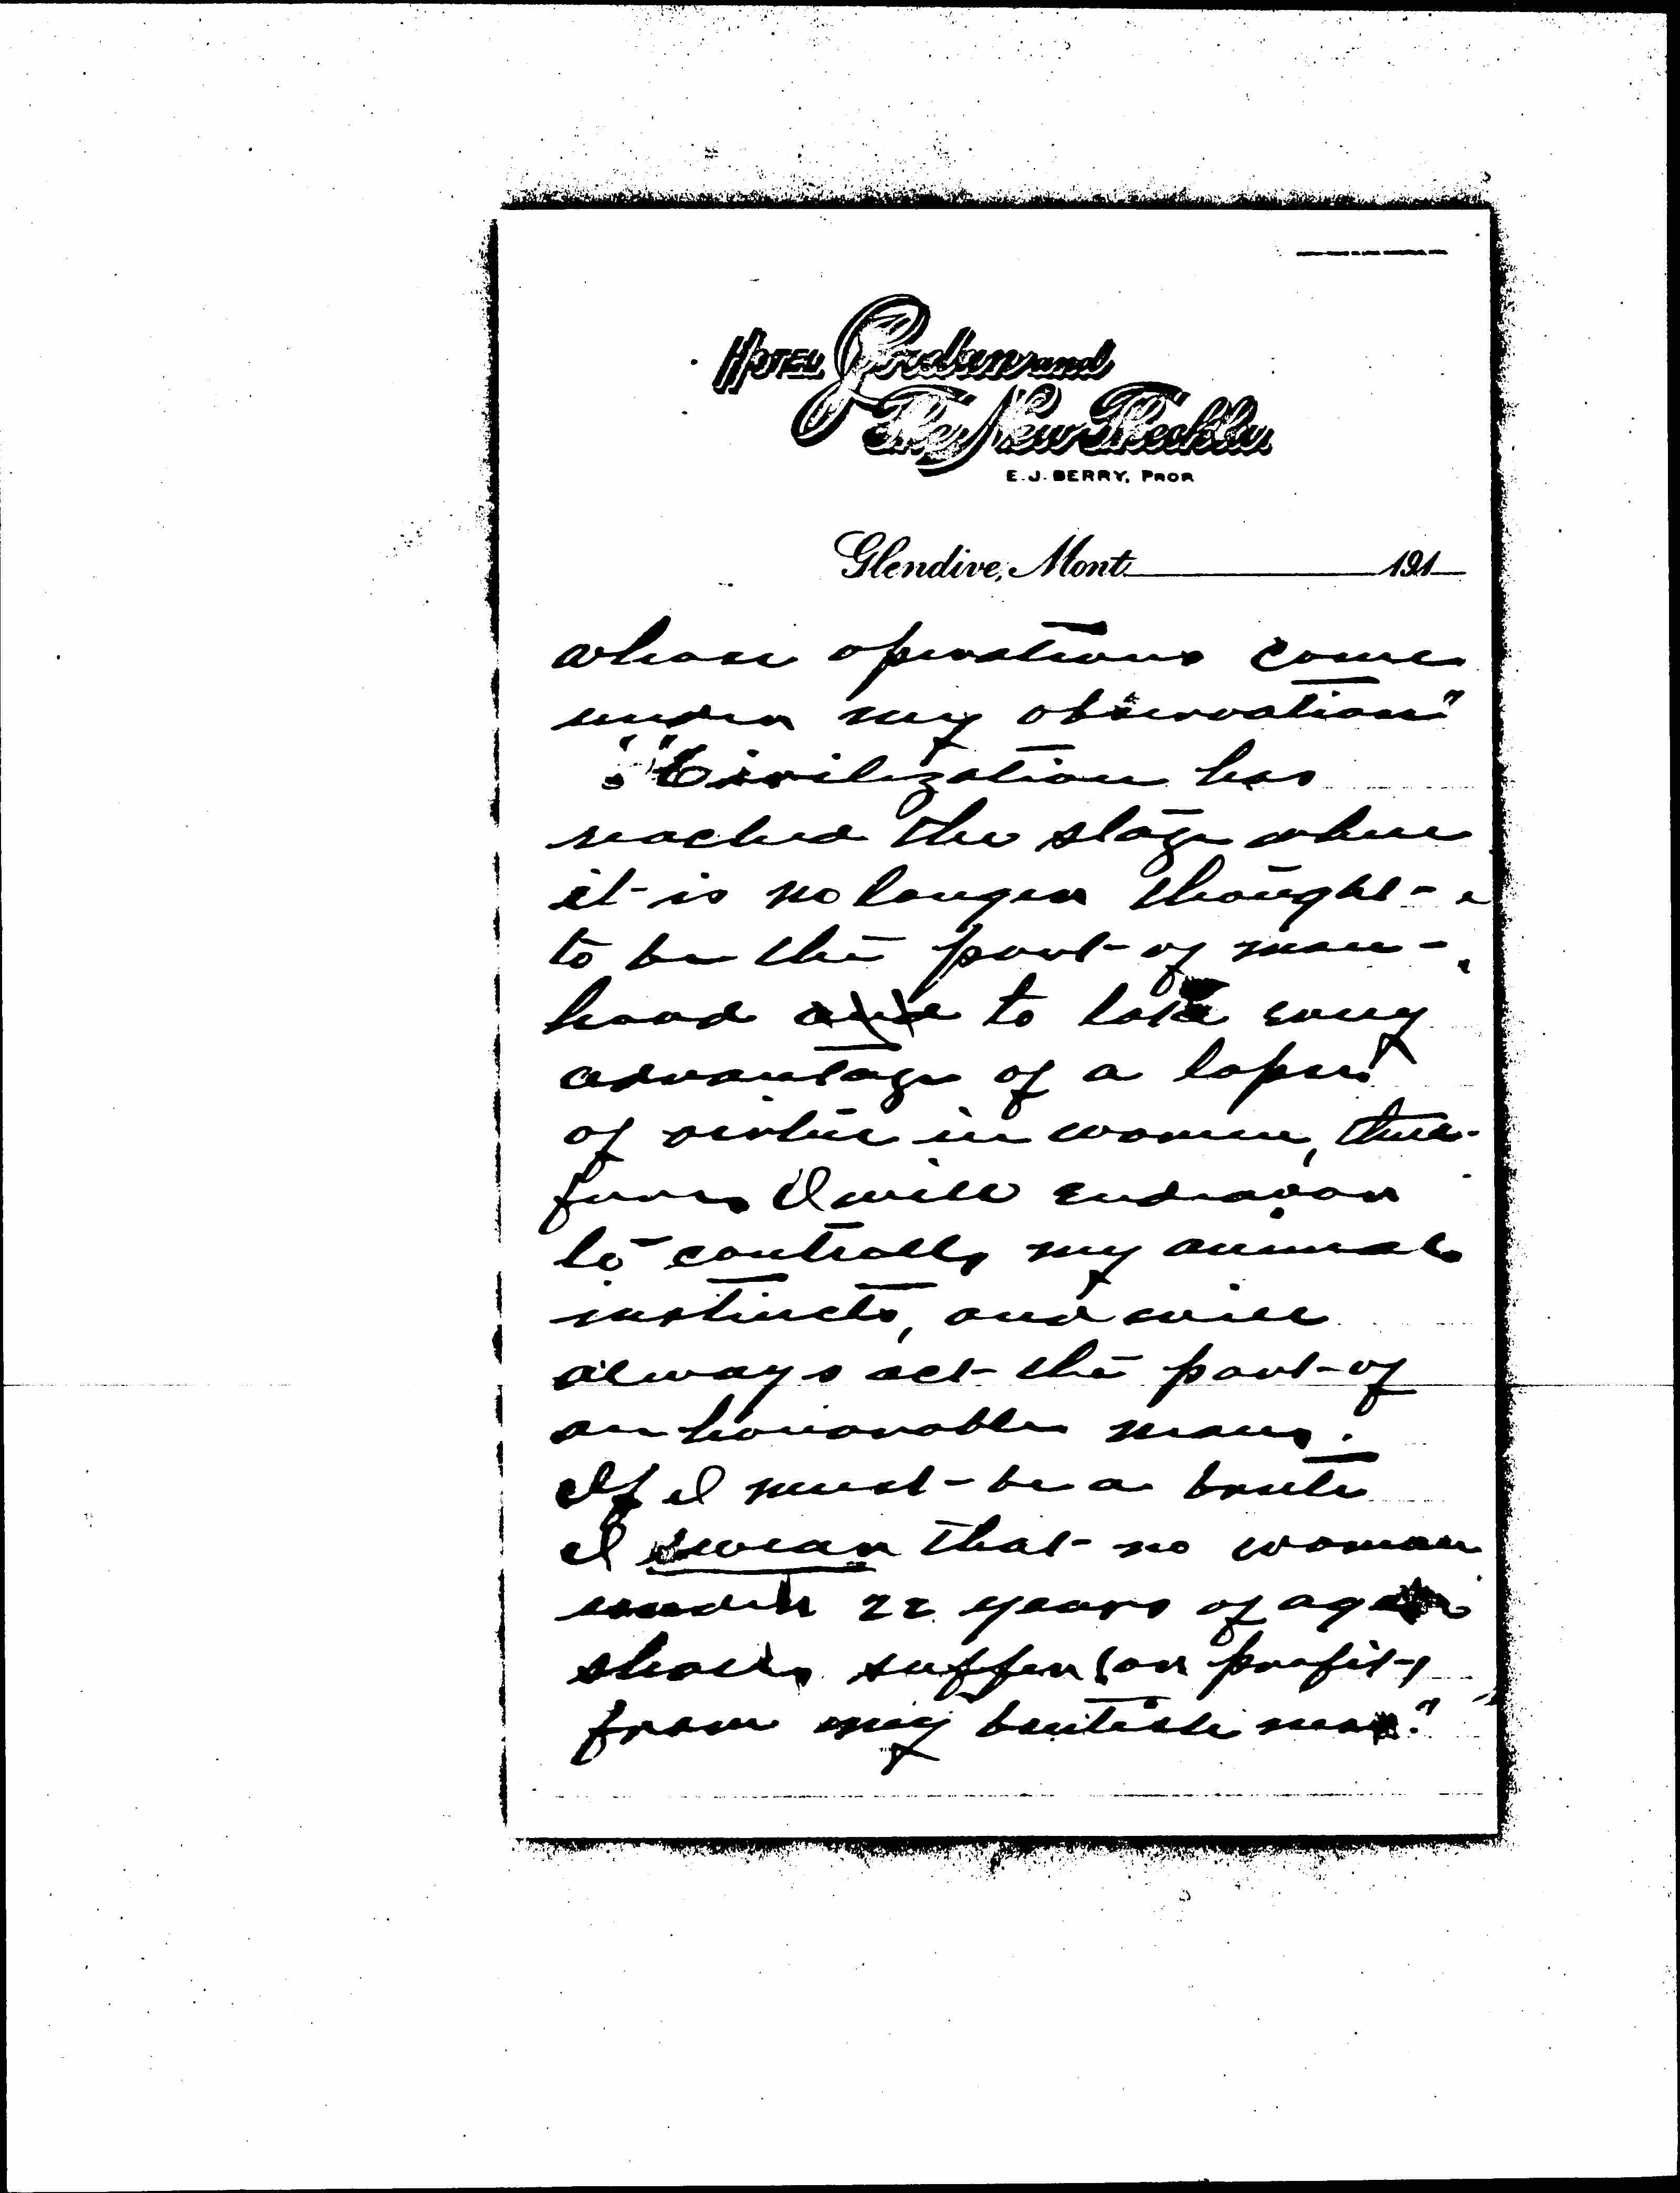 HOTEL Jordan and
The New Theckla
E. J. BERRY, PROP
Glendive, Mont. 191
whose operations come
under my observation"
"Civilization has
reached the stage where
it is no longer thought
to be the part of man-
hood to take
advantage of a lapse
of virtue in women, there-
fore I will endeavor
to controll my animal
instincts, and will
always act the part of
an honorable man.
If I must be a brute
I swear that no woman
under 22 years of age
shall suffer (or profit)
from my brutishness."